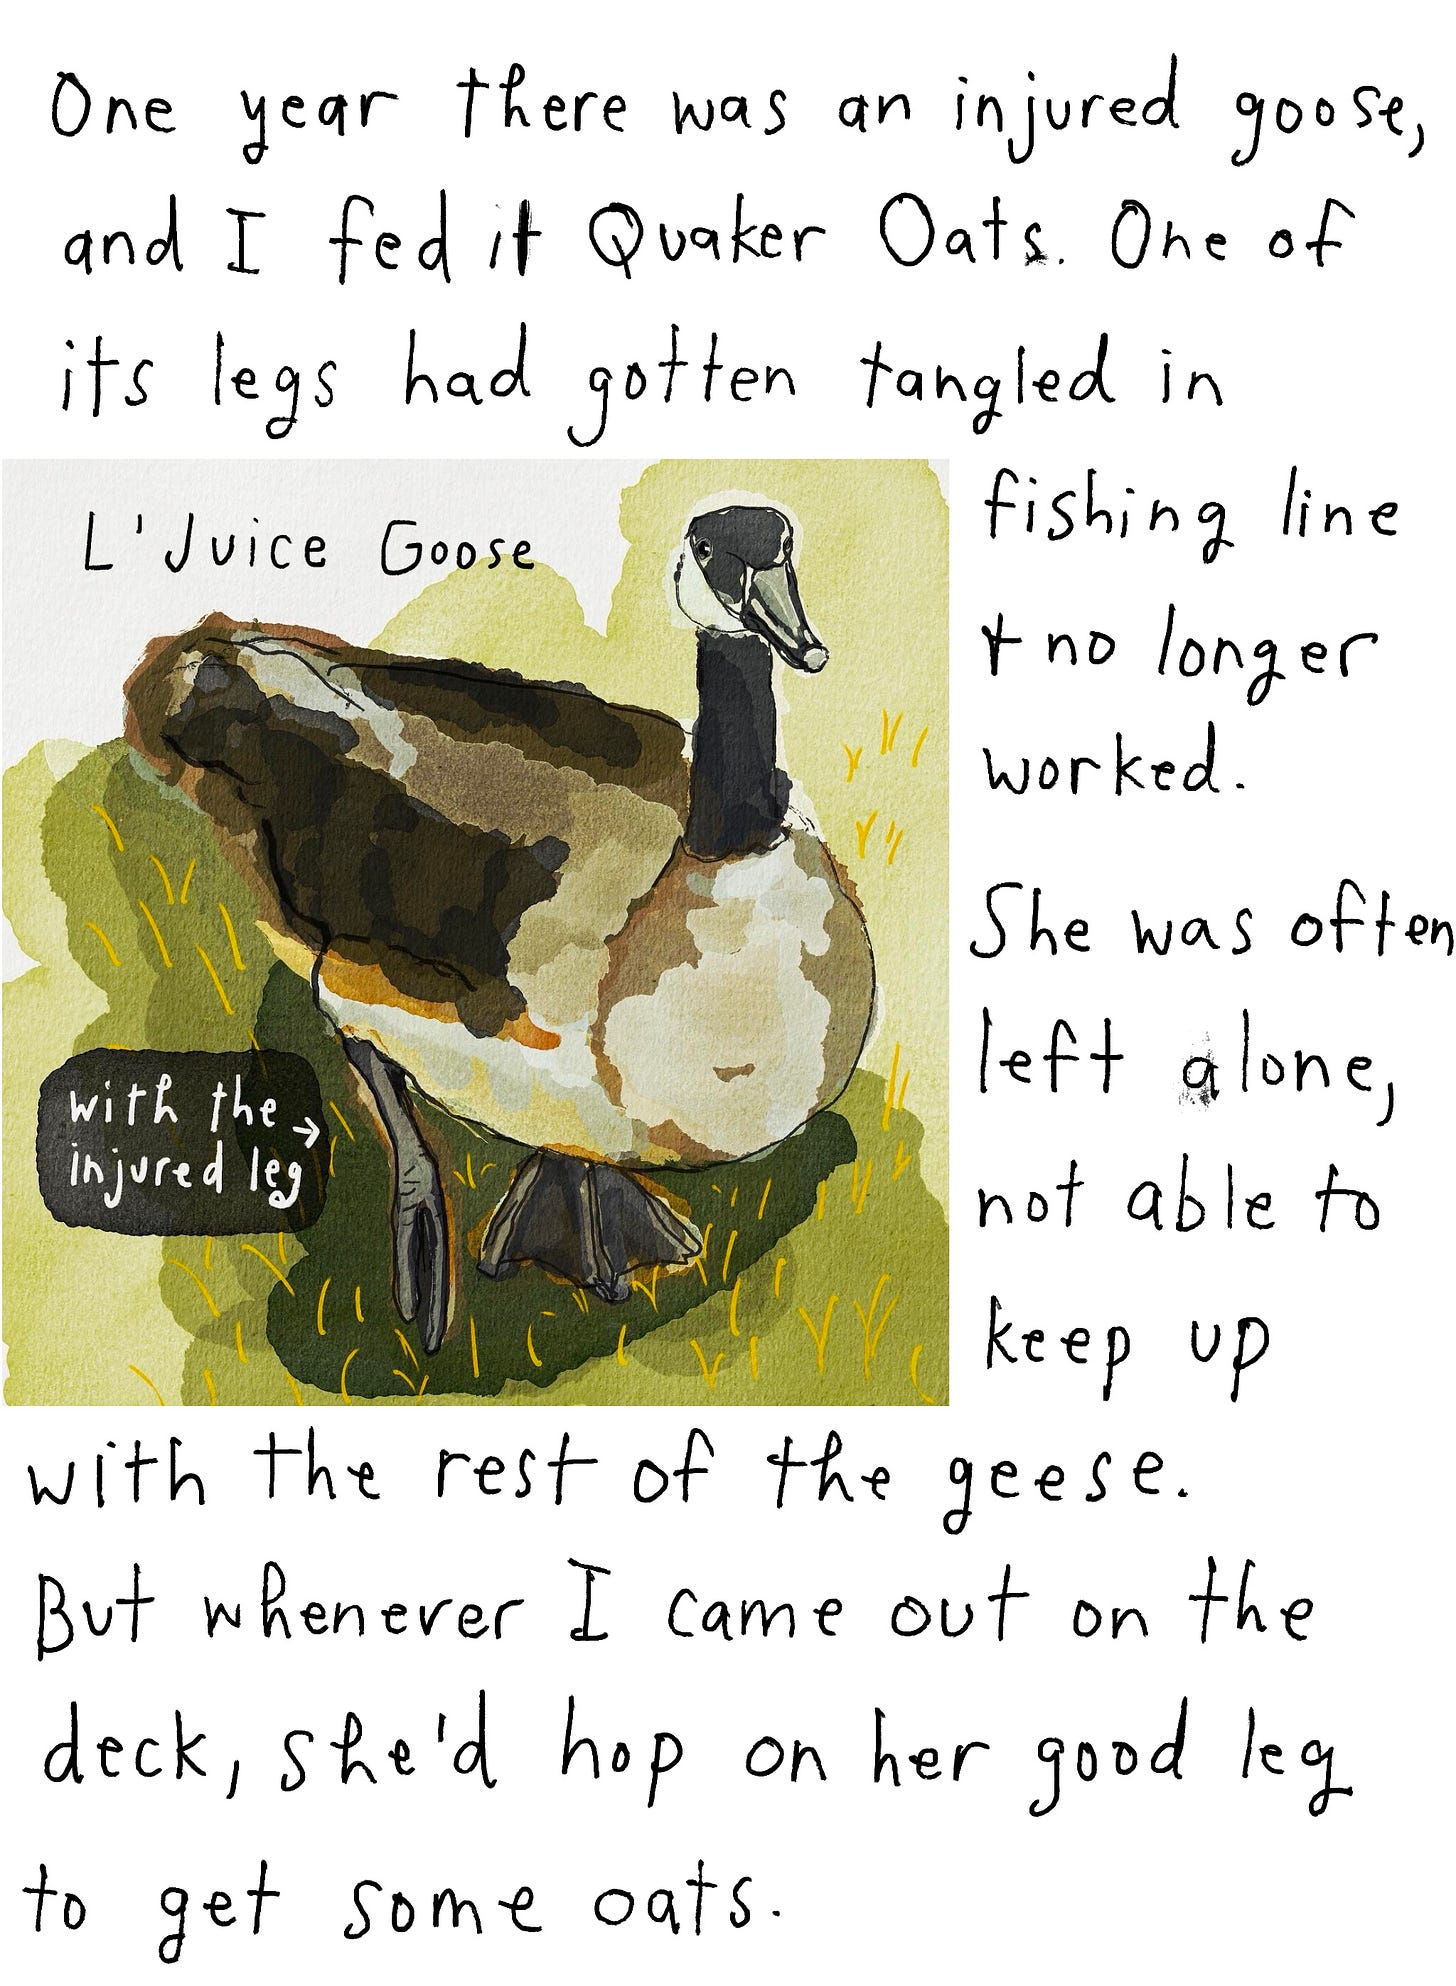 One year there was an injured goose,
and I fed it Quaker Oats. One of
its legs had gotten tangled in
L'Juice Goose
with the →
injured leg
fishing line
+ no longer
worked.
She was often
left alone,
not able to
keep up
with the rest of the geese.
But whenever I came out on the
deck, she'd hop on her good leg
to get some oats.